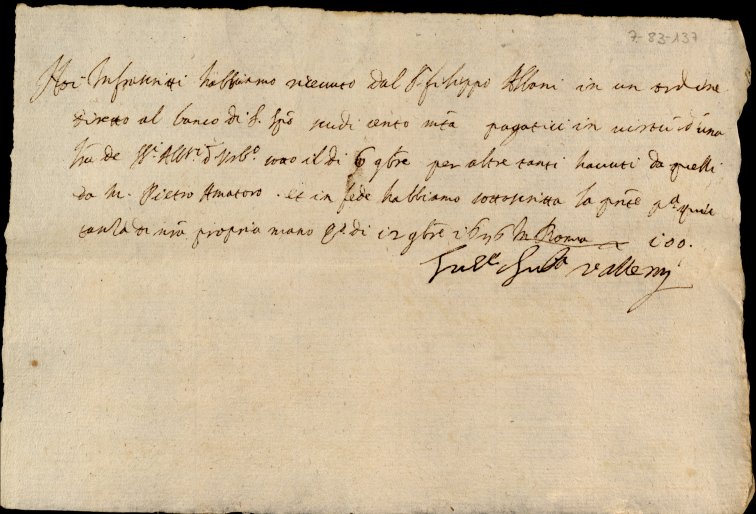 7-83-137
Noi Infrascritti habbiamo riceuuto dal S.r filippo Albani in un ordine
diretto al banco di S. Spo scudi cento mta pagatici in virtù d'una
lra de SS.ri Alb.ni d'Urb.o sotto il di 6 9bre per altre tanti hauuti da quelli
da M. Pietro Amatoro. et in fede habbiamo sottoscritta la pnte p.a quie
tanza di nra propria mano q.o di 12 9bre 1696 In Roma 100.
Valleny